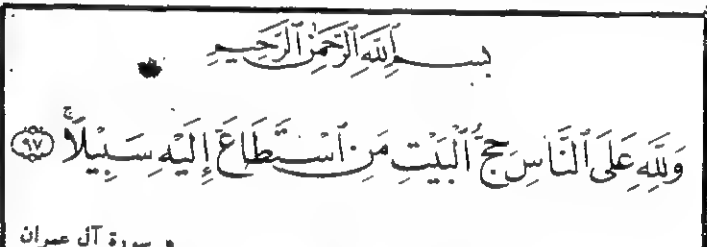 بِسْمِ ٱللَّهِ ٱلرَّحْمَٰنِ ٱلرَّحِيمِ
وَلِلَّهِ عَلَى ٱلنَّاسِ حِجُّ ٱلْبَيْتِ مَنِ ٱسْتَطَاعَ إِلَيْهِ سَبِيلًا ۚ ﴿٩٧﴾
سورة آل عمران